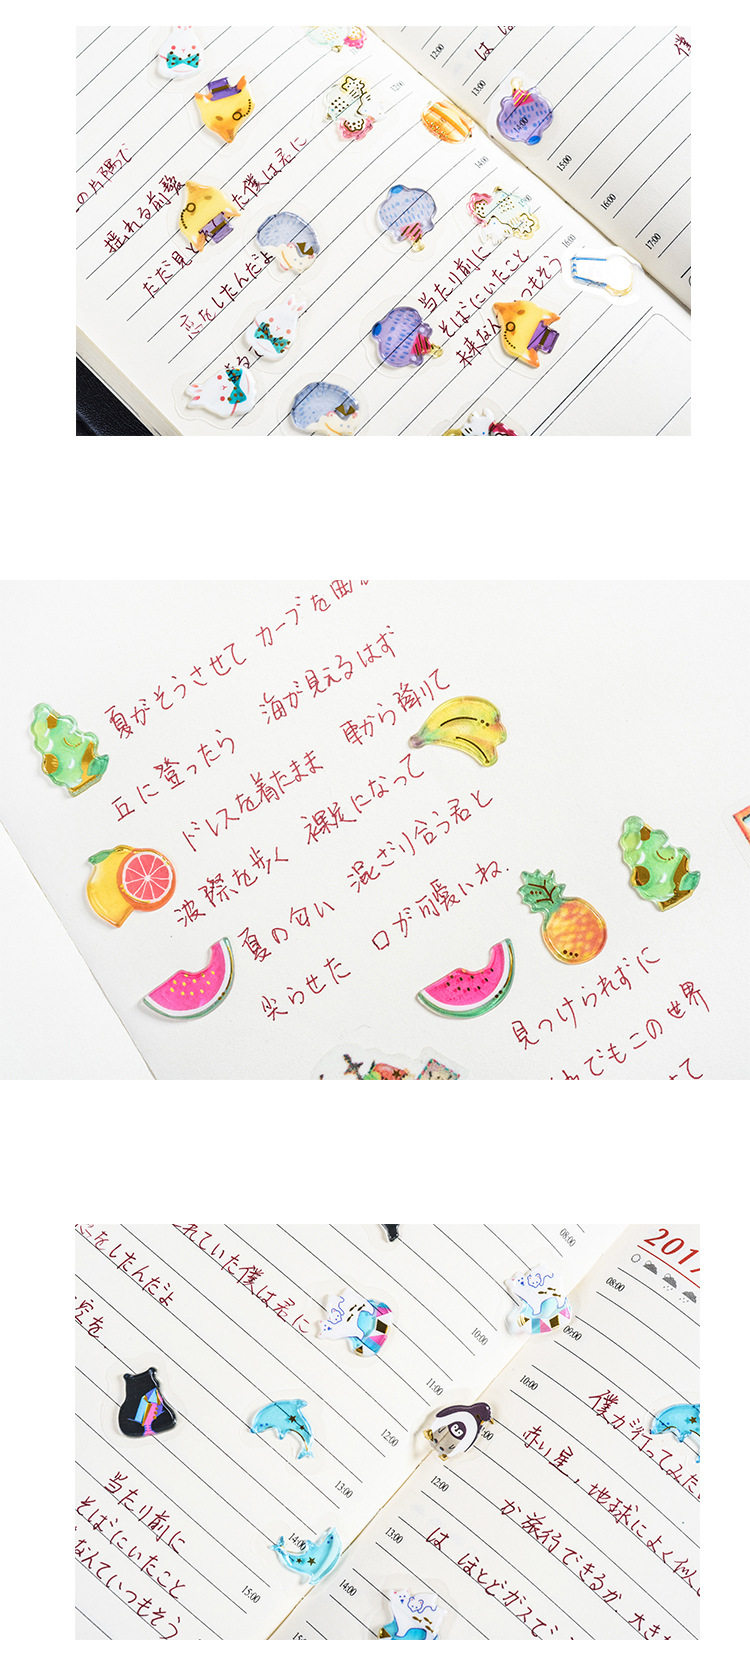 12:00
13:00
14:00
15:00
16:00
17:00
12:00
14:00
16:00
の片隅で
揺れる前髪
た僕は君に
ただ見と
恋をしたんだよ
当たり前に
そばにいたこと
未来なん
つもそう
夏がそうさせて カーブを曲
丘に登ったら 海が見えるはず
ドレスを着たまま 車から降りて
波際を歩く 裸足になって
夏の匂い 混ざり合う君と
尖らせた 口が可愛いね.
見つけられずに
でもこの世界
せて
恋をしたんだよ
れていた僕は君に
空を
当たり前に
そばにいたこと
なんていつもそう
08:00
10:00
11:00
12:00
13:00
14:00
15:00
2017
08:00
09:00
10:00
12:00
13:00
14:00
僕が行ってみた
赤い星,地球によく似
か旅行できるか.大き
は ほとどガスで